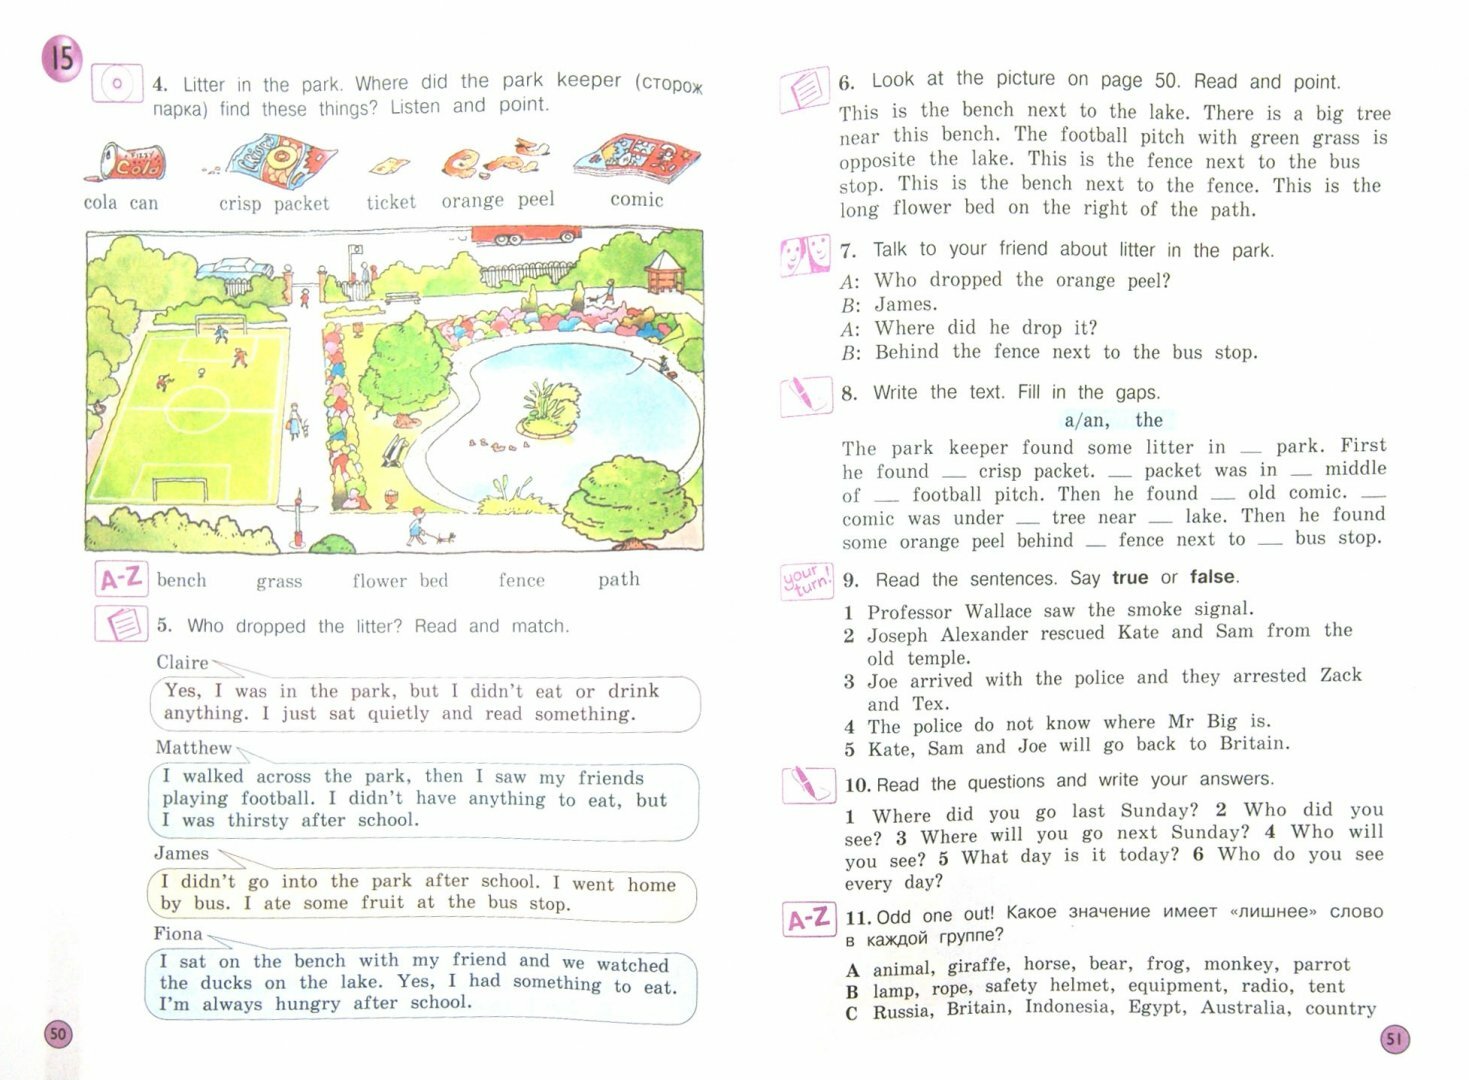 15
4. Litter in the park. Where did the park keeper (сторож
парка) find these things? Listen and point.
Fizzy
Cola
cola can
crisp packet
ticket
orange peel
comic
A-Z
bench grass flower bed fence path
5. Who dropped the litter? Read and match.
Claire
Yes, I was in the park, but I didn't eat or drink
anything. I just sat quietly and read something.
Matthew
I walked across the park, then I saw my friends
playing football. I didn't have anything to eat, but
I was thirsty after school.
James
I didn't go into the park after school. I went home
by bus. I ate some fruit at the bus stop.
Fiona
I sat on the bench with my friend and we watched
the ducks on the lake. Yes, I had something to eat.
I'm always hungry after school.
50
6. Look at the picture on page 50. Read and point.
This is the bench next to the lake. There is a big tree
near this bench. The football pitch with green grass is
opposite the lake. This is the fence next to the bus
stop. This is the bench next to the fence. This is the
long flower bed on the right of the path.
7. Talk to your friend about litter in the park.
A: Who dropped the orange peel?
B: James.
A: Where did he drop it?
B: Behind the fence next to the bus stop.
8. Write the text. Fill in the gaps.
a/an, the
The park keeper found some litter in __ park. First
he found __ crisp packet. __ packet was in __ middle
of __ football pitch. Then he found __ old comic. __
comic was under __ tree near __ lake. Then he found
some orange peel behind __ fence next to __ bus stop.
your turn!
9. Read the sentences. Say true or false.
1 Professor Wallace saw the smoke signal.
2 Joseph Alexander rescued Kate and Sam from the
old temple.
3 Joe arrived with the police and they arrested Zack
and Tex.
4 The police do not know where Mr Big is.
5 Kate, Sam and Joe will go back to Britain.
10. Read the questions and write your answers.
1 Where did you go last Sunday? 2 Who did you
see? 3 Where will you go next Sunday? 4 Who will
you see? 5 What day is it today? 6 Who do you see
every day?
A-Z
11. Odd one out! Какое значение имеет «лишнее» слово
в каждой группе?
A animal, giraffe, horse, bear, frog, monkey, parrot
B lamp, rope, safety helmet, equipment, radio, tent
C Russia, Britain, Indonesia, Egypt, Australia, country
51